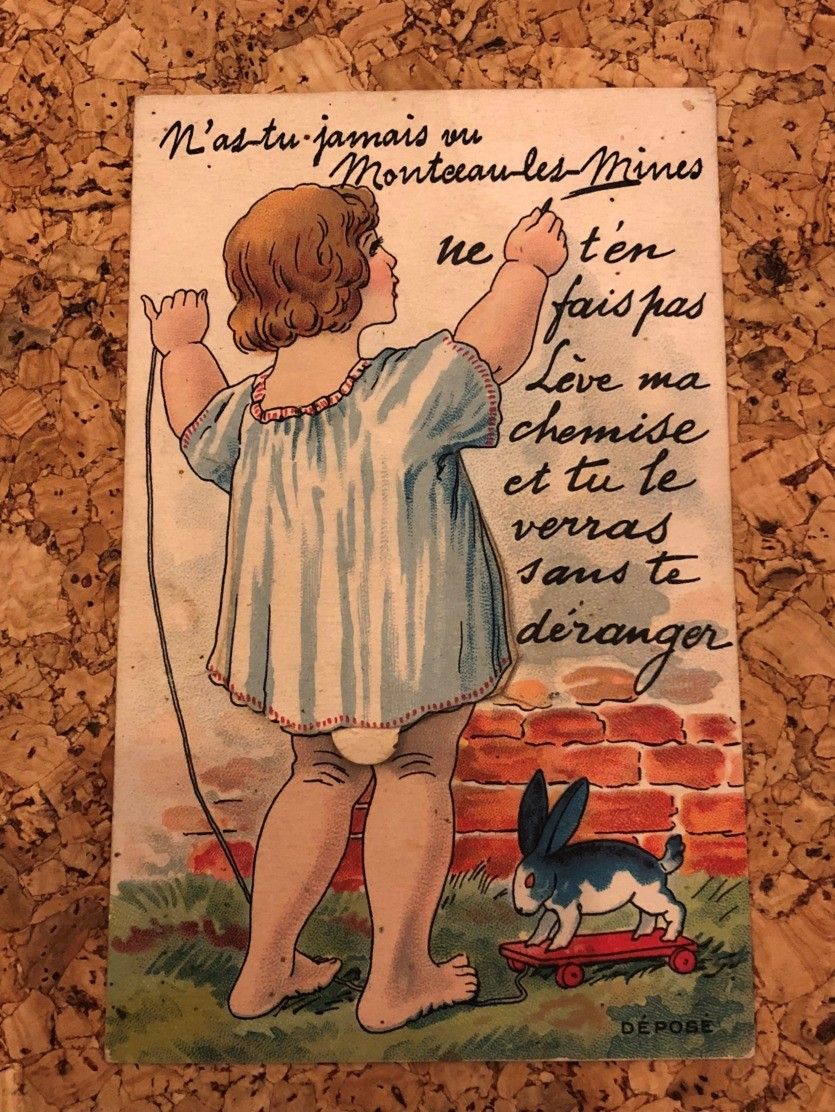 N'as-tu jamais vu
Montceau-les-Mines
ne t'en
fais pas
Lève ma
chemise
et tu le
verras
sans te
déranger
DÉPOSÉ